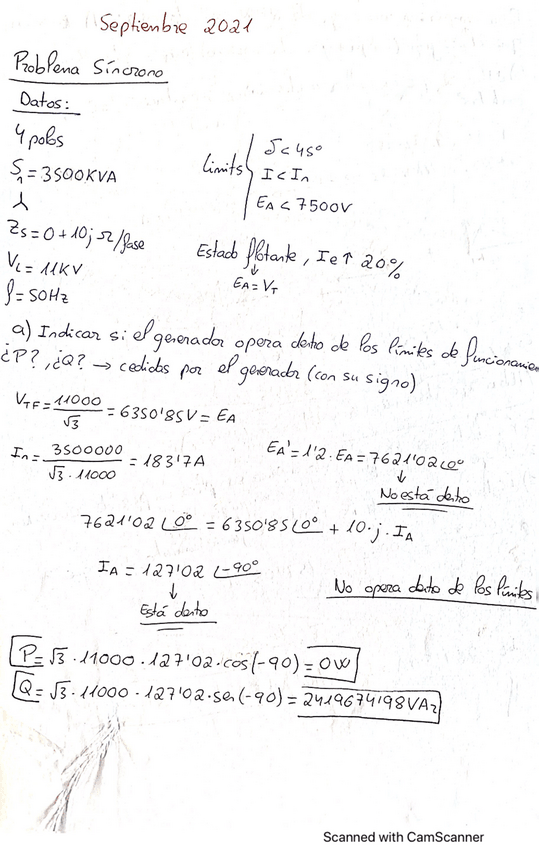 Septiembre 2021
Problema Síncrono
Datos:
4 polos
Sn = 3500KVA
Zs = 0 + 10j Ω/fase
VL = 11KV
f = 50Hz
Limits
δ < 45°
I < In
EA < 7500V
Estado flotante, Ie ↑ 20%
↓
EA = VT
a) Indicar si el generador opera detro de los límites de funcionamien
¿P?, ¿Q? → cedidas por el generador (con su signo)
VTF = 11000/√3 = 6350'85V = EA
In = 3500000/(√3 · 11000) = 183'7A
EA' = 1'2 · EA = 7621'02∠0°
↓
No está detro
7621'02∠0° = 6350'85∠0° + 10·j·IA
IA = 127'02∠-90°
↓
Está detro
No opera detro de los límites
P = √3 · 11000 · 127'02 · cos(-90) = 0W
Q = √3 · 11000 · 127'02 · sen(-90) = 2419674'98VAr
Scanned with CamScanner